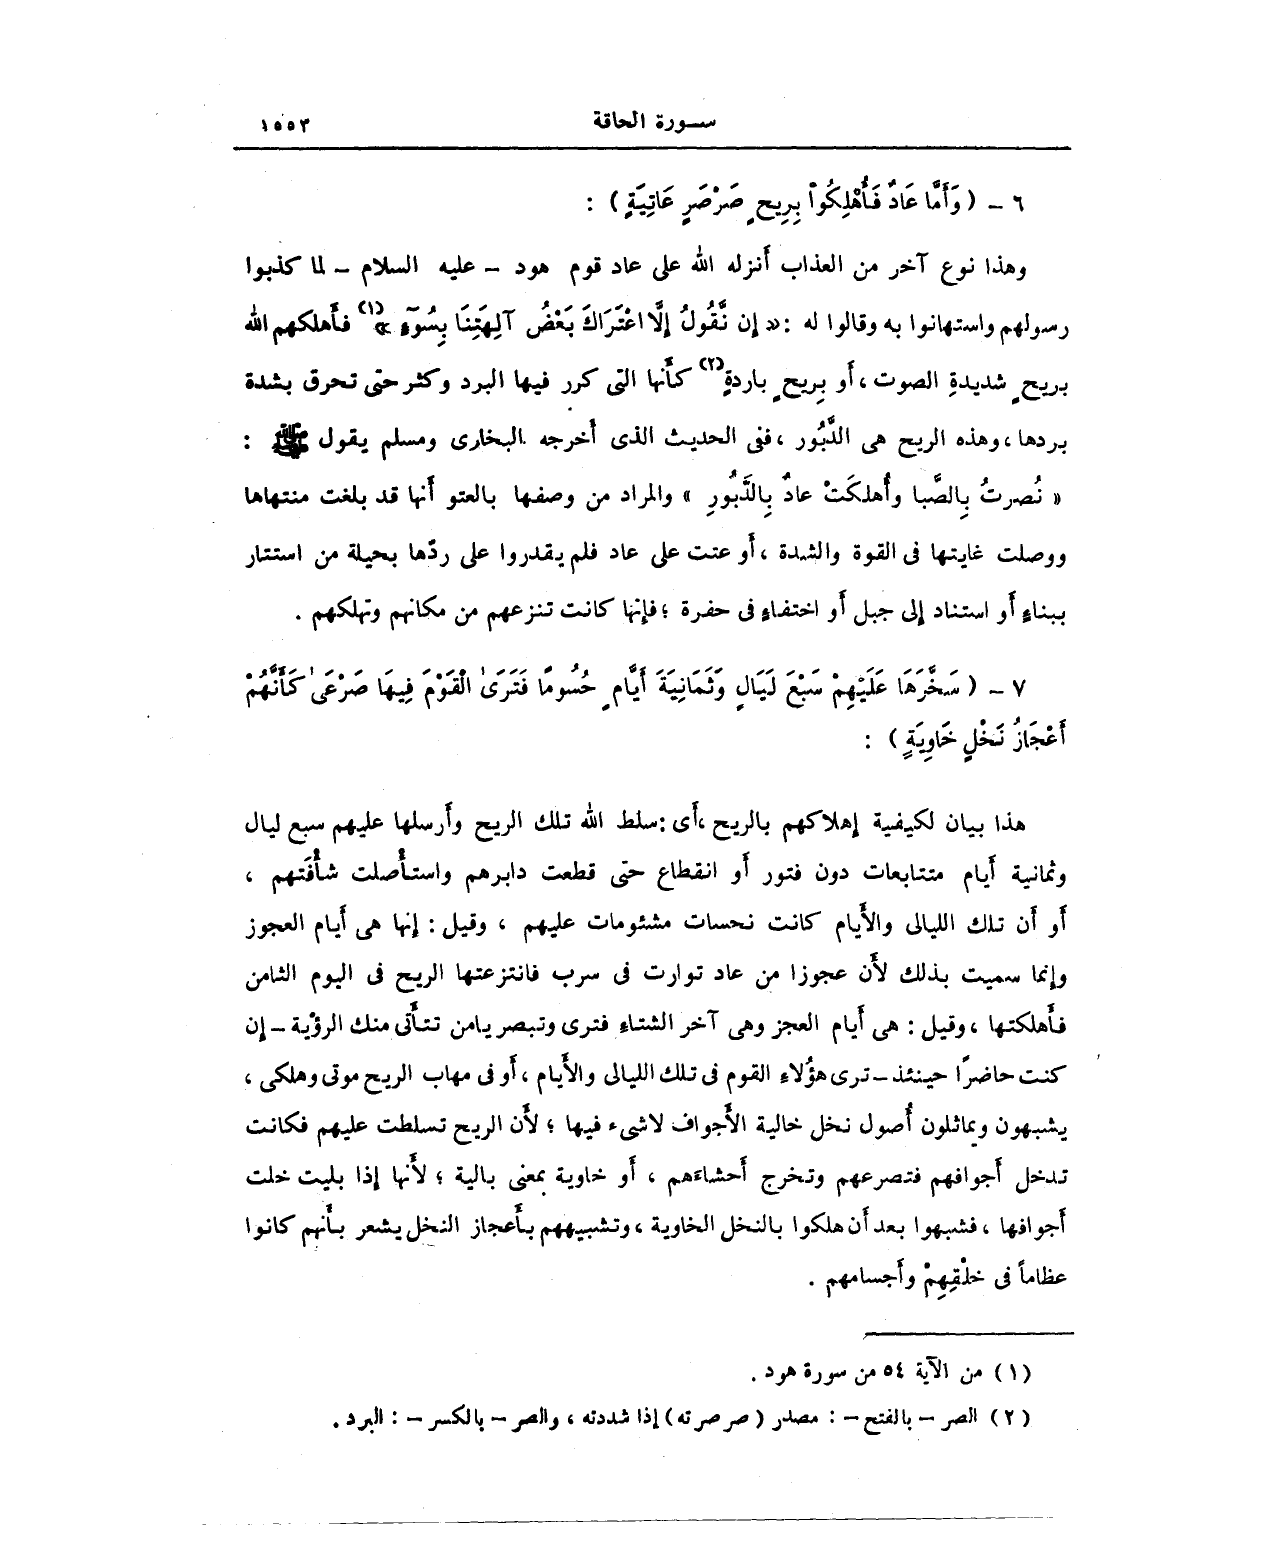 سورة الحاقة ١٥٥٣
٦ – ( وَأَمَّا عَادٌ فَأُهْلِكُواْ بِرِيحٍ صَرْصَرٍ عَاتِيَةٍ ) :
وهذا نوع آخر من العذاب أنزله الله على عاد قوم هود – عليه السلام – لما كذبوا
رسولهم واستهانوا به وقالوا له : « إن نَّقُولُ إلَّا اعْتَرَاكَ بَعْضُ آلِهَتِنَا بِسُوٓءٍ » (١) فأهلكهم الله
بريحٍ شديدةِ الصوت ، أو بِريحٍ باردةٍ (٢) كأنها التى كرر فيها البرد وكثر حتى تحرق بشدة
بردها ، وهذه الريح هى الدَّبُور ، ففى الحديث الذى أخرجه البخارى ومسلم يقول ﷺ :
« نُصرتُ بِالصَّبا وأُهلكَتْ عادٌ بِالدَّبُورِ » والمراد من وصفها بالعتو أنها قد بلغت منتهاها
ووصلت غايتها فى القوة والشدة ، أو عتت على عاد فلم يقدروا على ردّها بحيلة من استتار
ببناءٍ أو استناد إلى جبل أو اختفاءٍ فى حفرة ؛ فإنها كانت تنزعهم من مكانهم وتهلكهم .
٧ – ( سَخَّرَهَا عَلَيْهِمْ سَبْعَ لَيَالٍ وَثَمَانِيَةَ أَيَّامٍ حُسُومًا فَتَرَىٰ الْقَوْمَ فِيهَا صَرْعَىٰ كَأَنَّهُمْ
أَعْجَازُ نَخْلٍ خَاوِيَةٍ ) :
هذا بيان لكيفية إهلاكهم بالريح ، أى : سلط الله تلك الريح وأرسلها عليهم سبع ليال
وثمانية أيام متتابعات دون فتور أو انقطاع حتى قطعت دابرهم واستأصلت شأْفَتهم ،
أو أن تلك الليالى والأيام كانت نحسات مشئومات عليهم ، وقيل : إنها هى أيام العجوز
وإنما سميت بذلك لأن عجوزا من عاد توارت فى سرب فانتزعتها الريح فى اليوم الثامن
فأهلكتها ، وقيل : هى أيام العجز وهى آخر الشتاءِ فترى وتبصر يامن تتأتى منك الرؤية – إن
كنت حاضرًا حينئذ – ترى هؤُلاءِ القوم فى تلك الليالى والأيام ، أو فى مهاب الريح موتى وهلكى ،
يشبهون ويماثلون أُصول نخل خالية الأجواف لاشىء فيها ؛ لأن الريح تسلطت عليهم فكانت
تدخل أجوافهم فتصرعهم وتخرج أحشاءَهم ، أو خاوية بمعنى بالية ؛ لأنها إذا بليت خلت
أجوافها ، فشبهوا بعد أن هلكوا بالنخل الخاوية ، وتشبيههم بأعجاز النخل يشعر بأنهم كانوا
عظاماً فى خلْقِهِمْ وأجسامهم .
(١) من الآية ٥٤ من سورة هود .
(٢) الصر – بالفتح – : مصدر ( صرصرته ) إذا شددته ، والصر – بالكسر – : البرد .